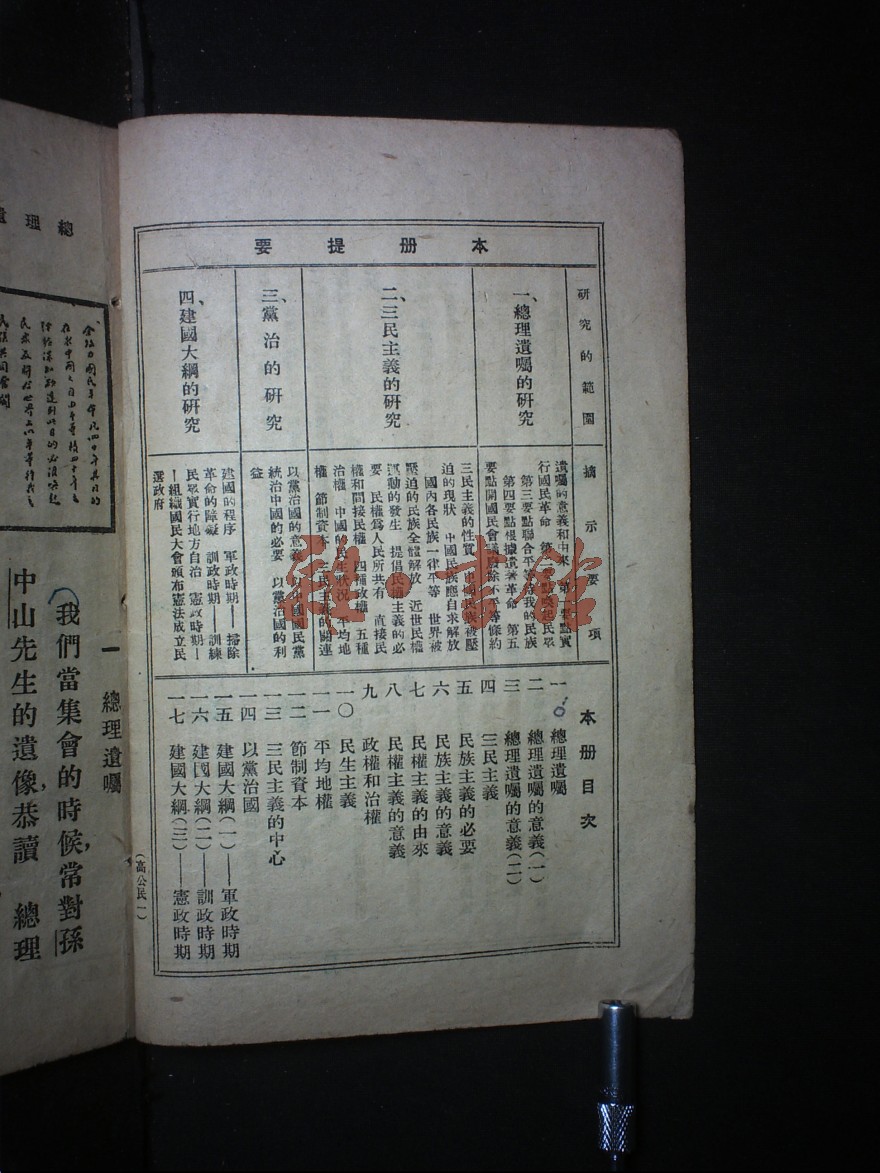 本册提要
研究的範圍
摘示要項
一、總理遺囑的研究
遺囑的意義和由來　第一要點實
行國民革命　第二要點喚起民眾
第三要點聯合平等待我的民族
第四要點根據遺著革命　第五
要點開國民會議廢除不平等條約
二、三民主義的研究
三民主義的性質　中國民族被壓
迫的現狀　中國民族應自求解放
國內各民族一律平等　世界被
壓迫的民族全體解放　近世民權
運動的發生　提倡民權主義的必
要　民權爲人民所共有　直接民
權和間接民權　四種政權　五種
治權　中國的民生狀況　平均地
權　節制資本　三民主義的關連
三、黨治的研究
以黨治國的意義　以中國國民黨
統治中國的必要　以黨治國的利
益
四、建國大綱的研究
建國的程序　軍政時期——掃除
革命的障礙　訓政時期——訓練
民眾實行地方自治　憲政時期—
—組織國民大會頒布憲法成立民
選政府
本册目次
一　總理遺囑
二　總理遺囑的意義(一)
三　總理遺囑的意義(二)
四　三民主義
五　民族主義的必要
六　民族主義的意義
七　民權主義的由來
八　民權主義的意義
九　政權和治權
一〇　民生主義
一一　平均地權
一二　節制資本
一三　三民主義的中心
一四　以黨治國
一五　建國大綱(一)——軍政時期
一六　建國大綱(二)——訓政時期
一七　建國大綱(三)——憲政時期
(高公民一)
總理
余致力國民革命凡四十年其目的
在求中國之自由平等積四十年之
經驗深知欲達到此目的必須喚起
民眾及聯合世界上以平等待我之
民族共同奮鬥
一　總理遺囑
我們當集會的時候,常對孫
中山先生的遺像,恭讀　總理
書館